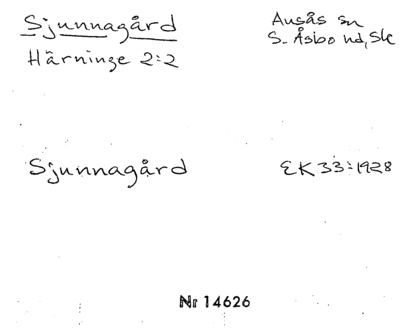 Sjunnagård
Härninge 2:2
Ausås sn
S. Åsbo hd, Sk
Sjunnagård
EK 33:1928
Nr 14626